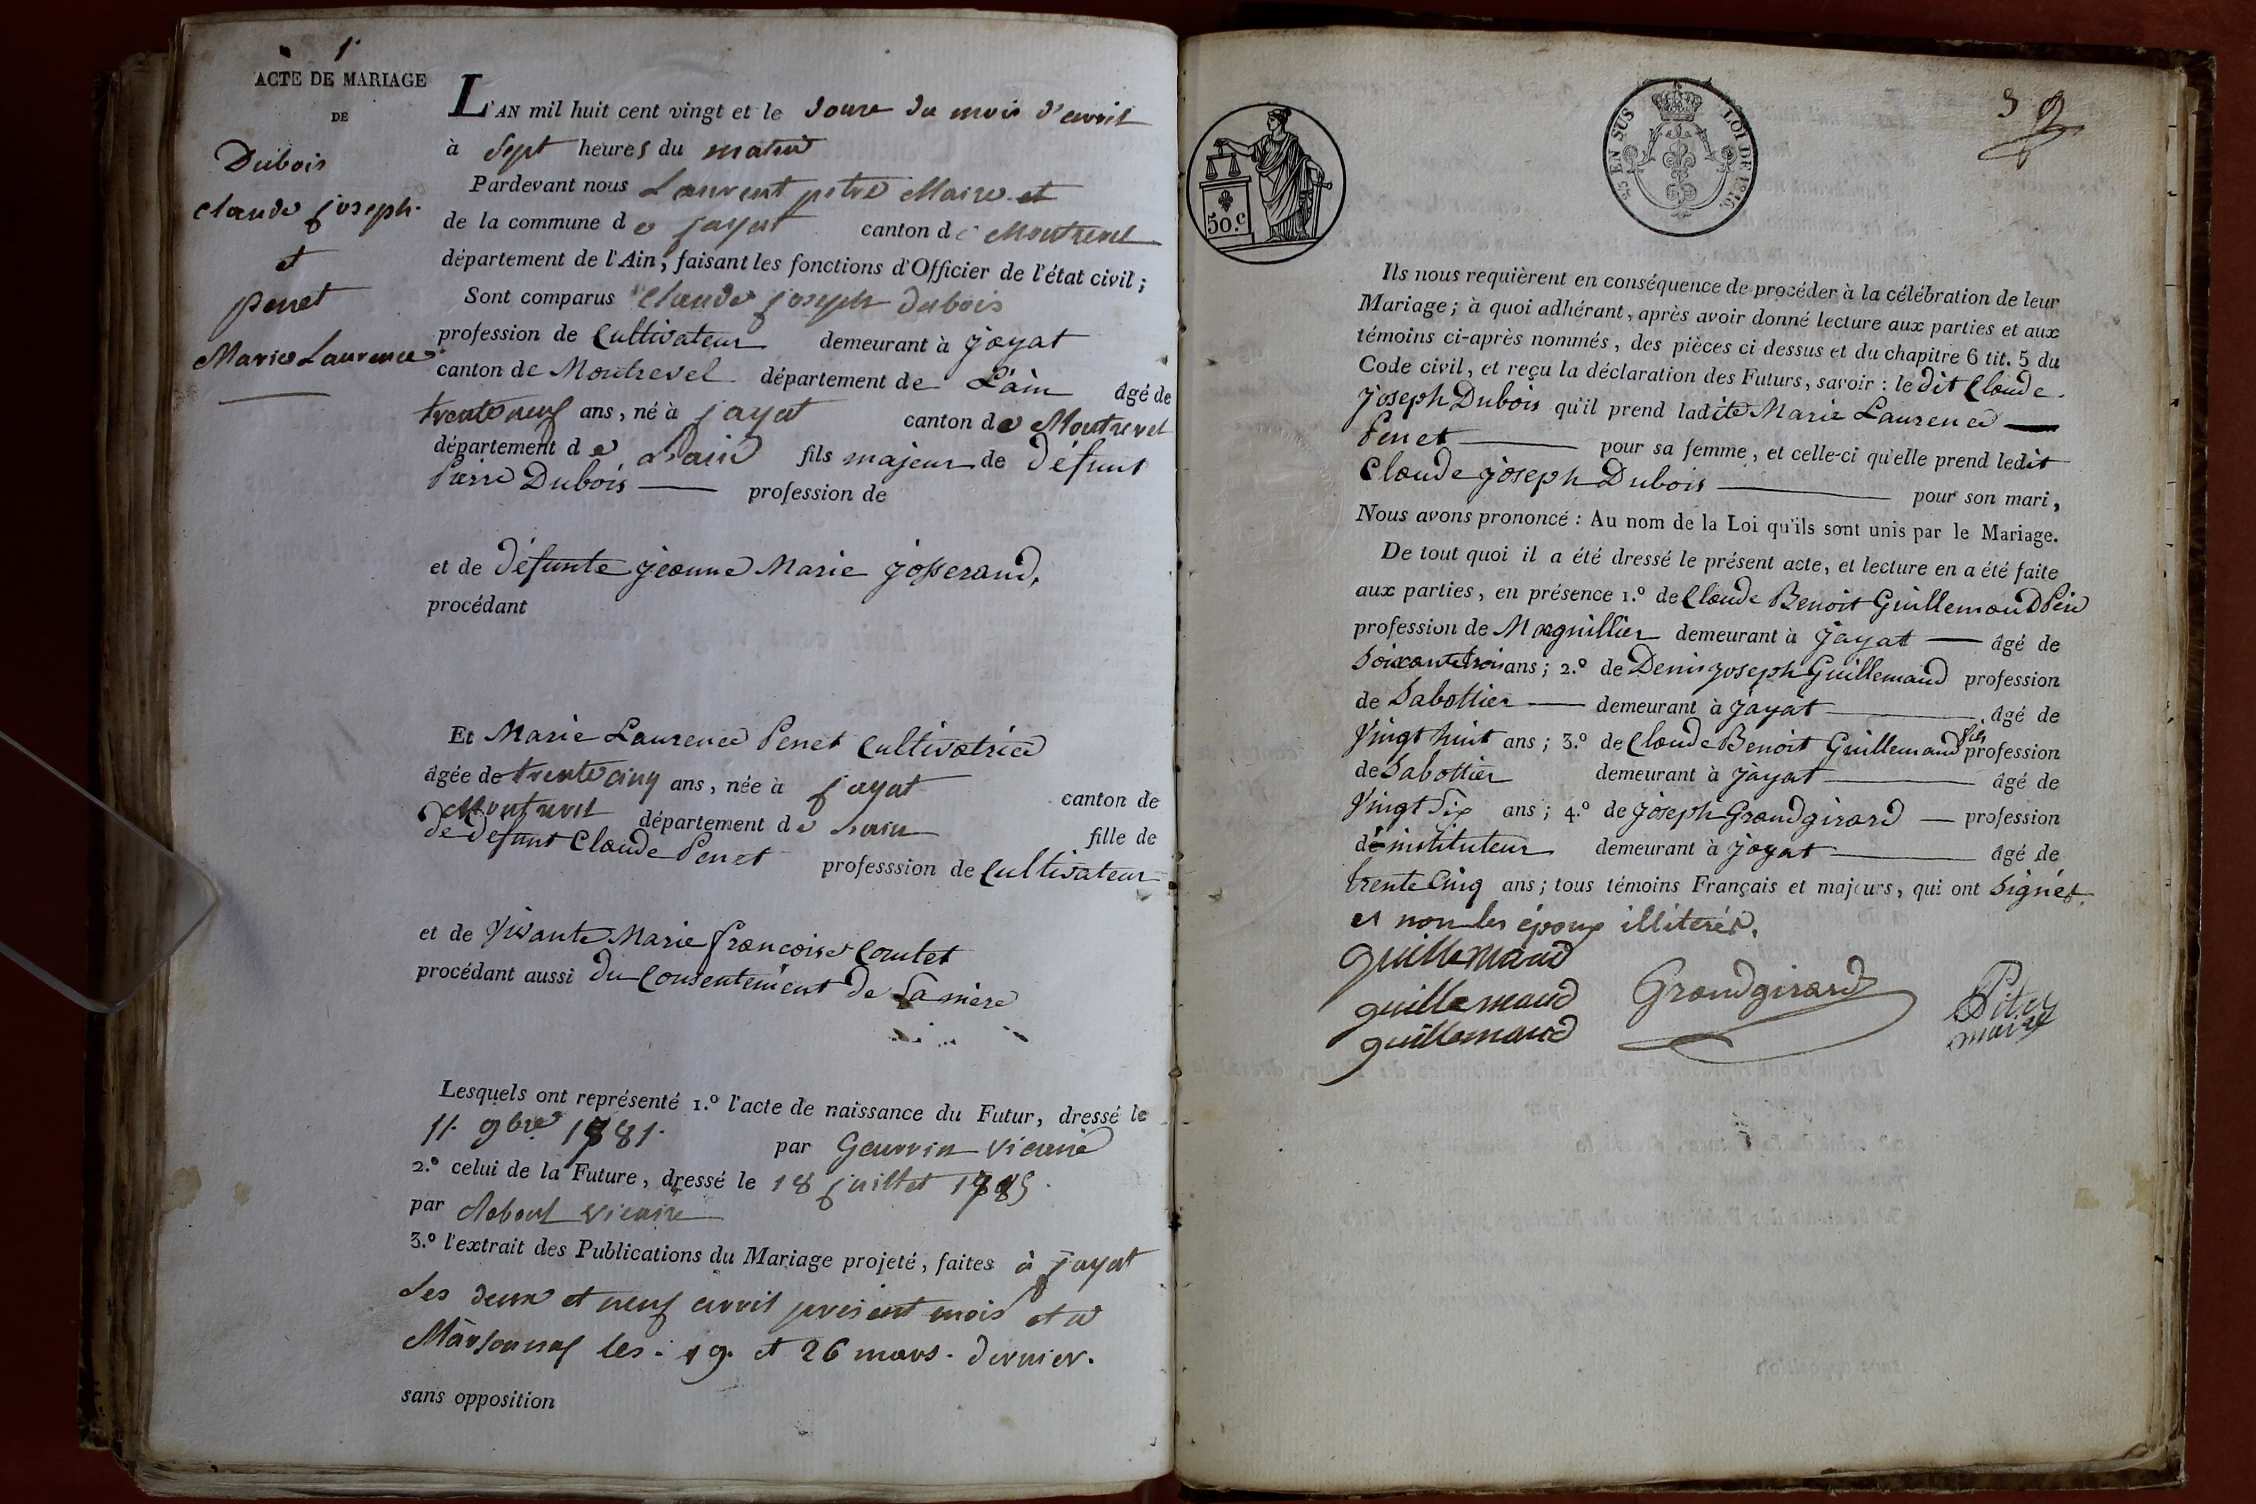 1.
ACTE DE MARIAGE
DE
Dubois
Claude joseph
et
penet
Marie Laurence
L'AN mil huit cent vingt et le douze du mois d'avril
à Sept heures du matin
Pardevant nous Laurent pitre Maire et
de la commune de jayat canton de Montrevel
département de l'Ain, faisant les fonctions d'Officier de l'état civil;
Sont comparus Claude joseph dubois
profession de Cultivateur demeurant à jayat
canton de Montrevel département de L'ain âgé de
trente neuf ans, né à jayat canton de Montrevel
département de Lain fils majeur de défunt
Pierre Dubois profession de
et de défunte jeanne Marie josserand,
procédant
Et Marie Laurence Penet Cultivatrice
âgée de trente cinq ans, née à jayat canton de
Montrevel département de Lain fille de
de defunt Claude Penet professsion de Cultivateur
et de Vivante Marie francoise Coutet
procédant aussi du Consentement de Sa mere
Lesquels ont représenté 1.º l'acte de naissance du Futur, dressé le
11. 9bre 1781. par vicaire
2.º celui de la Future, dressé le 18 juillet 1785
par vicaire
3.º l'extrait des Publications du Mariage projeté, faites à jayat
Les deux et neuf avril present mois et a
Marsonnas les 19. et 26 mars. dernier.
sans opposition
50.c
25 EN SUS LOI DE 1816.
Ils nous requièrent en conséquence de procéder à la célébration de leur
Mariage; à quoi adhérant, après avoir donné lecture aux parties et aux
témoins ci-après nommés, des pièces ci dessus et du chapitre 6 tit. 5 du
Code civil, et reçu la déclaration des Futurs, savoir: le dit Claude
joseph Dubois qu'il prend ladite Marie Laurence
Penet pour sa femme, et celle-ci qu'elle prend ledit
Claude joseph Dubois pour son mari,
Nous avons prononcé: Au nom de la Loi qu'ils sont unis par le Mariage.
De tout quoi il a été dressé le présent acte, et lecture en a été faite
aux parties, en présence 1.º de Claude Benoit Guillemaud Pere
profession de Marguillier demeurant à jayat âgé de
Soixante trois ans; 2.º de Denis joseph Guillemaud profession
de Sabottier demeurant à jayat âgé de
Vingt huit ans; 3.º de Claude Benoit Guillemaud fils profession
de Sabottier demeurant à jayat âgé de
Vingt Six ans; 4.º de joseph Grandgirard profession
d'instituteur demeurant à jayat âgé de
trente Cinq ans; tous témoins Français et majeurs, qui ont signés
et non les époux illiterés.
guillemaud
guillemaud Grandgirard
guillemaud maire